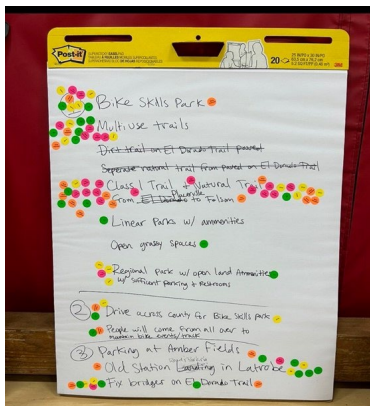 Post-it
20
3M
Bike Skills Park
Multiuse trails
Dirt trail on El Dorado Trail paved
Seperate natural trail from paved on El Dorado Trail
Class 1 Trail + Natural Trail
Placerville
from El Dorado to Folsom
Linear Parks w/ ammenities
Open grassy spaces
Regional park w/ open land Ammenities
w/ sufficent parking + Restrooms
2 Drive across county for Bike Skills park
People will come from all over to
mountain bike events/track
3 Parking at Amber Fields
Old Station Landing in Latrobe
Fix bridges on El Dorado Trail